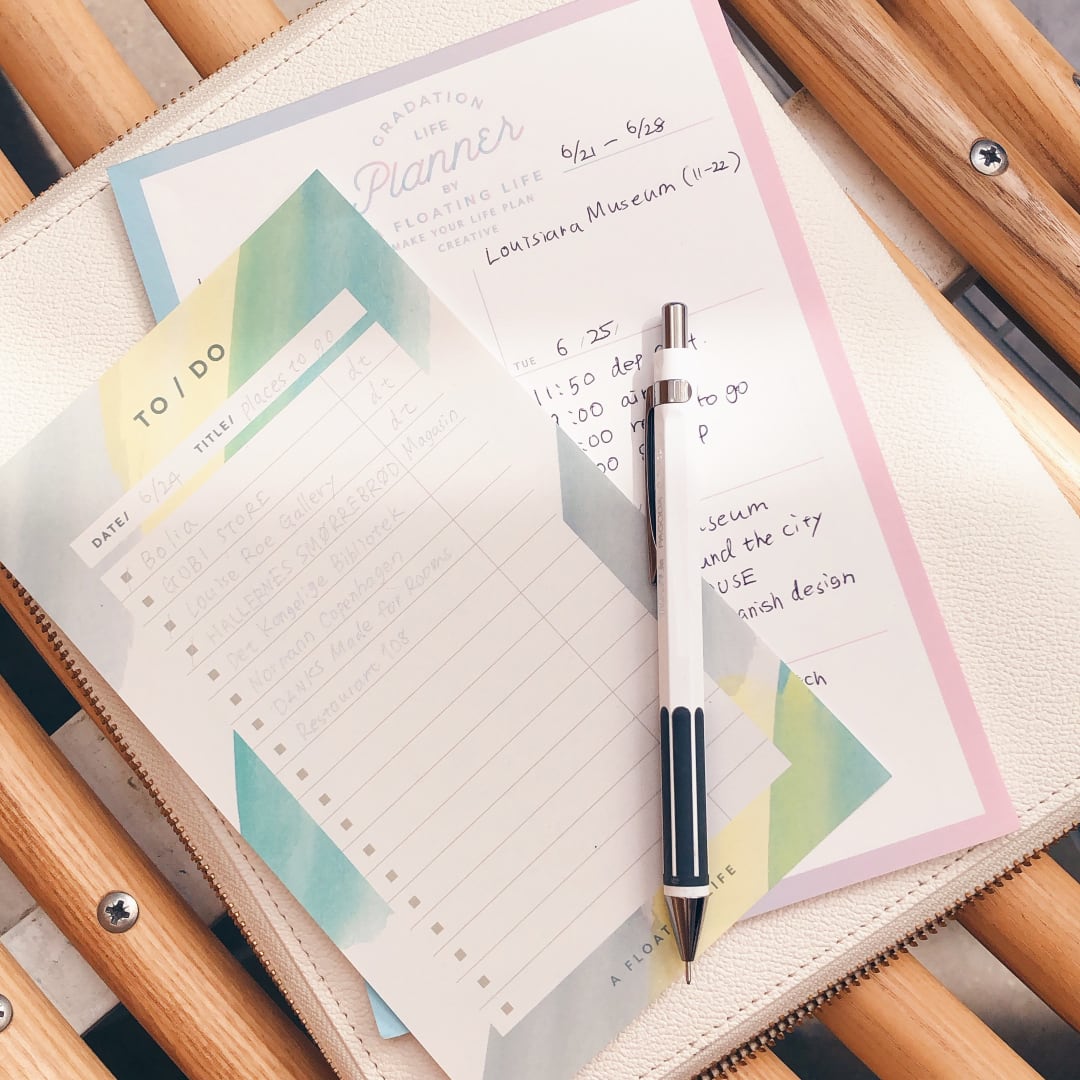 GRADATION
LIFE
Planner
BY
FLOATING LIFE
MAKE YOUR LIFE PLAN
CREATIVE
6/21 - 6/28
Louisiana Museum (11-22)
TUE 6/25
11:50
:00 to go
:00
00
the city
design
TO / DO
DATE/ 6/24 TITLE/ places to go
Bolia dt
GUBI STORE dt
Louise Roe Gallery dt
HALLERNES SMØRREBRØD Magasin
Det Kongelige Bibliotek
Normann Copenhagen
DANKS Made for Rooms
Restaurant 108
A FLOAT IFE